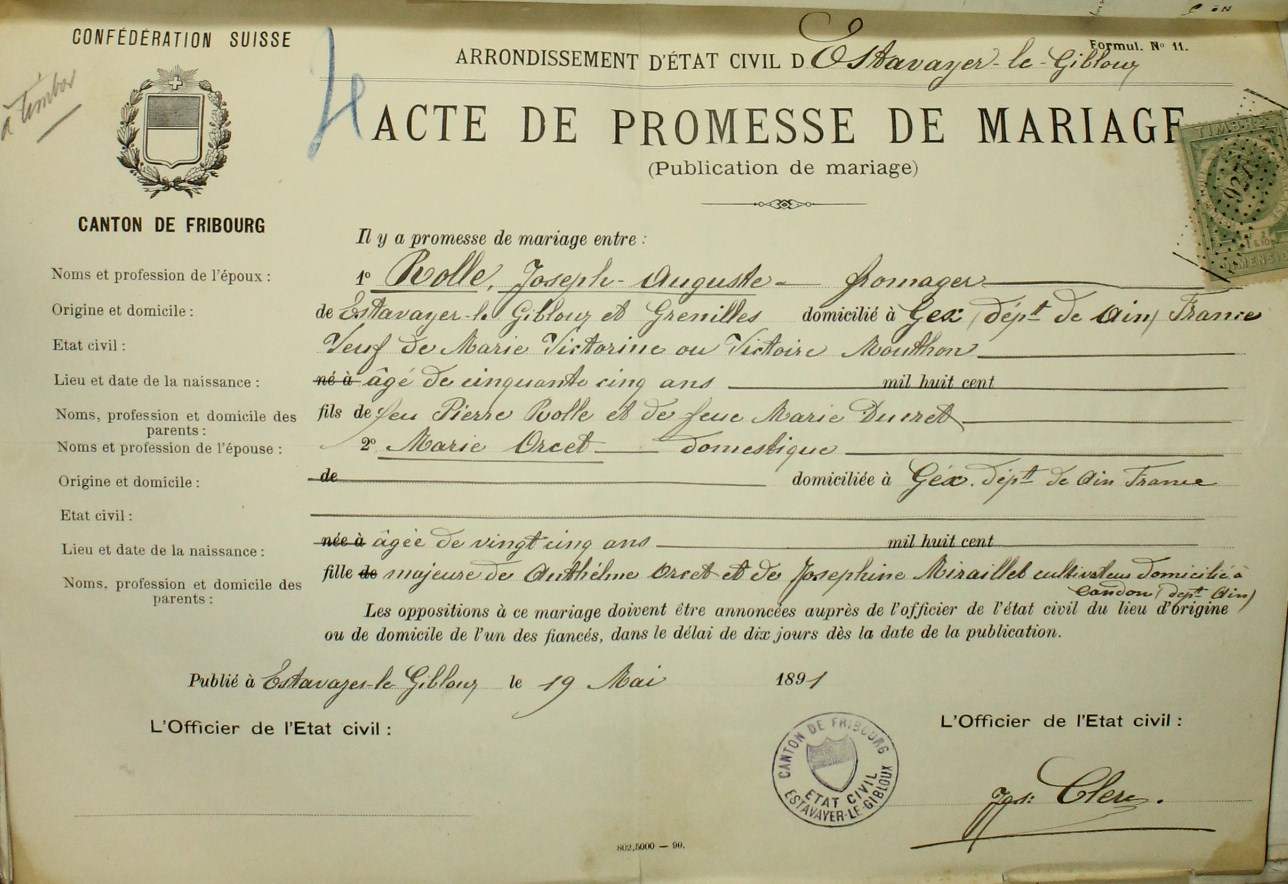 CONFÉDÉRATION SUISSE
Formul. Nº 11.
à timbrer
ARRONDISSEMENT D'ÉTAT CIVIL D'Estavayer-le-Gibloux
ACTE DE PROMESSE DE MARIAGE
(Publication de mariage)
TIMBRE
927
DIMENSION
CANTON DE FRIBOURG
Il y a promesse de mariage entre :
Noms et profession de l'époux : 1º Rolle, Joseph-Auguste - fromager
Origine et domicile : de Estavayer-le Gibloux et Grenilles domicilié à Gex (dépt de Ain) France
Etat civil : Veuf de Marie Victorine ou Victoire Mouthon
Lieu et date de la naissance : né à âgé de cinquante cinq ans mil huit cent
Noms, profession et domicile des parents : fils de feu Pierre Rolle et de feue Marie Ducret
Noms et profession de l'épouse : 2º Marie Orcet domestique
Origine et domicile : de domiciliée à Géx. dépt de Ain France
Etat civil :
Lieu et date de la naissance : née à âgée de vingt cinq ans mil huit cent
Noms, profession et domicile des parents : fille de majeure de Anthélme Orcet et de Josephine Miraillet cultivateurs domicilié à
(dept Ain)
Les oppositions à ce mariage doivent être annoncées auprès de l'officier de l'état civil du lieu d'origine
ou de domicile de l'un des fiancés, dans le délai de dix jours dès la date de la publication.
Publié à Estavayer-le-Gibloux le 19 Mai 1891
L'Officier de l'Etat civil :
L'Officier de l'Etat civil :
CANTON DE FRIBOURG
ETAT CIVIL
ESTAVAYER-LE-GIBLOUX
Jos: Clerc.
802,5000 — 90.